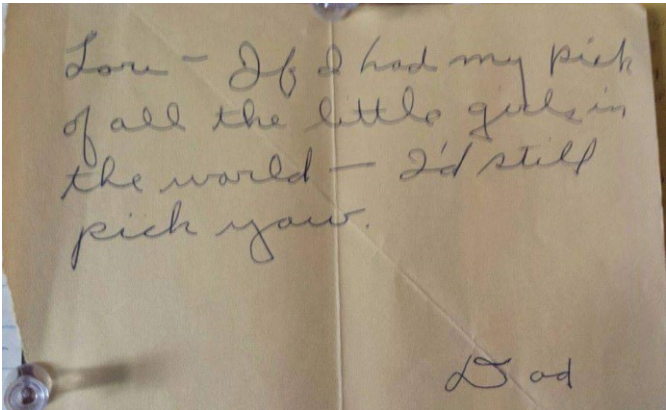 Lori - If I had my pick
of all the little girls in
the world - I'd still
pick you.
Dad